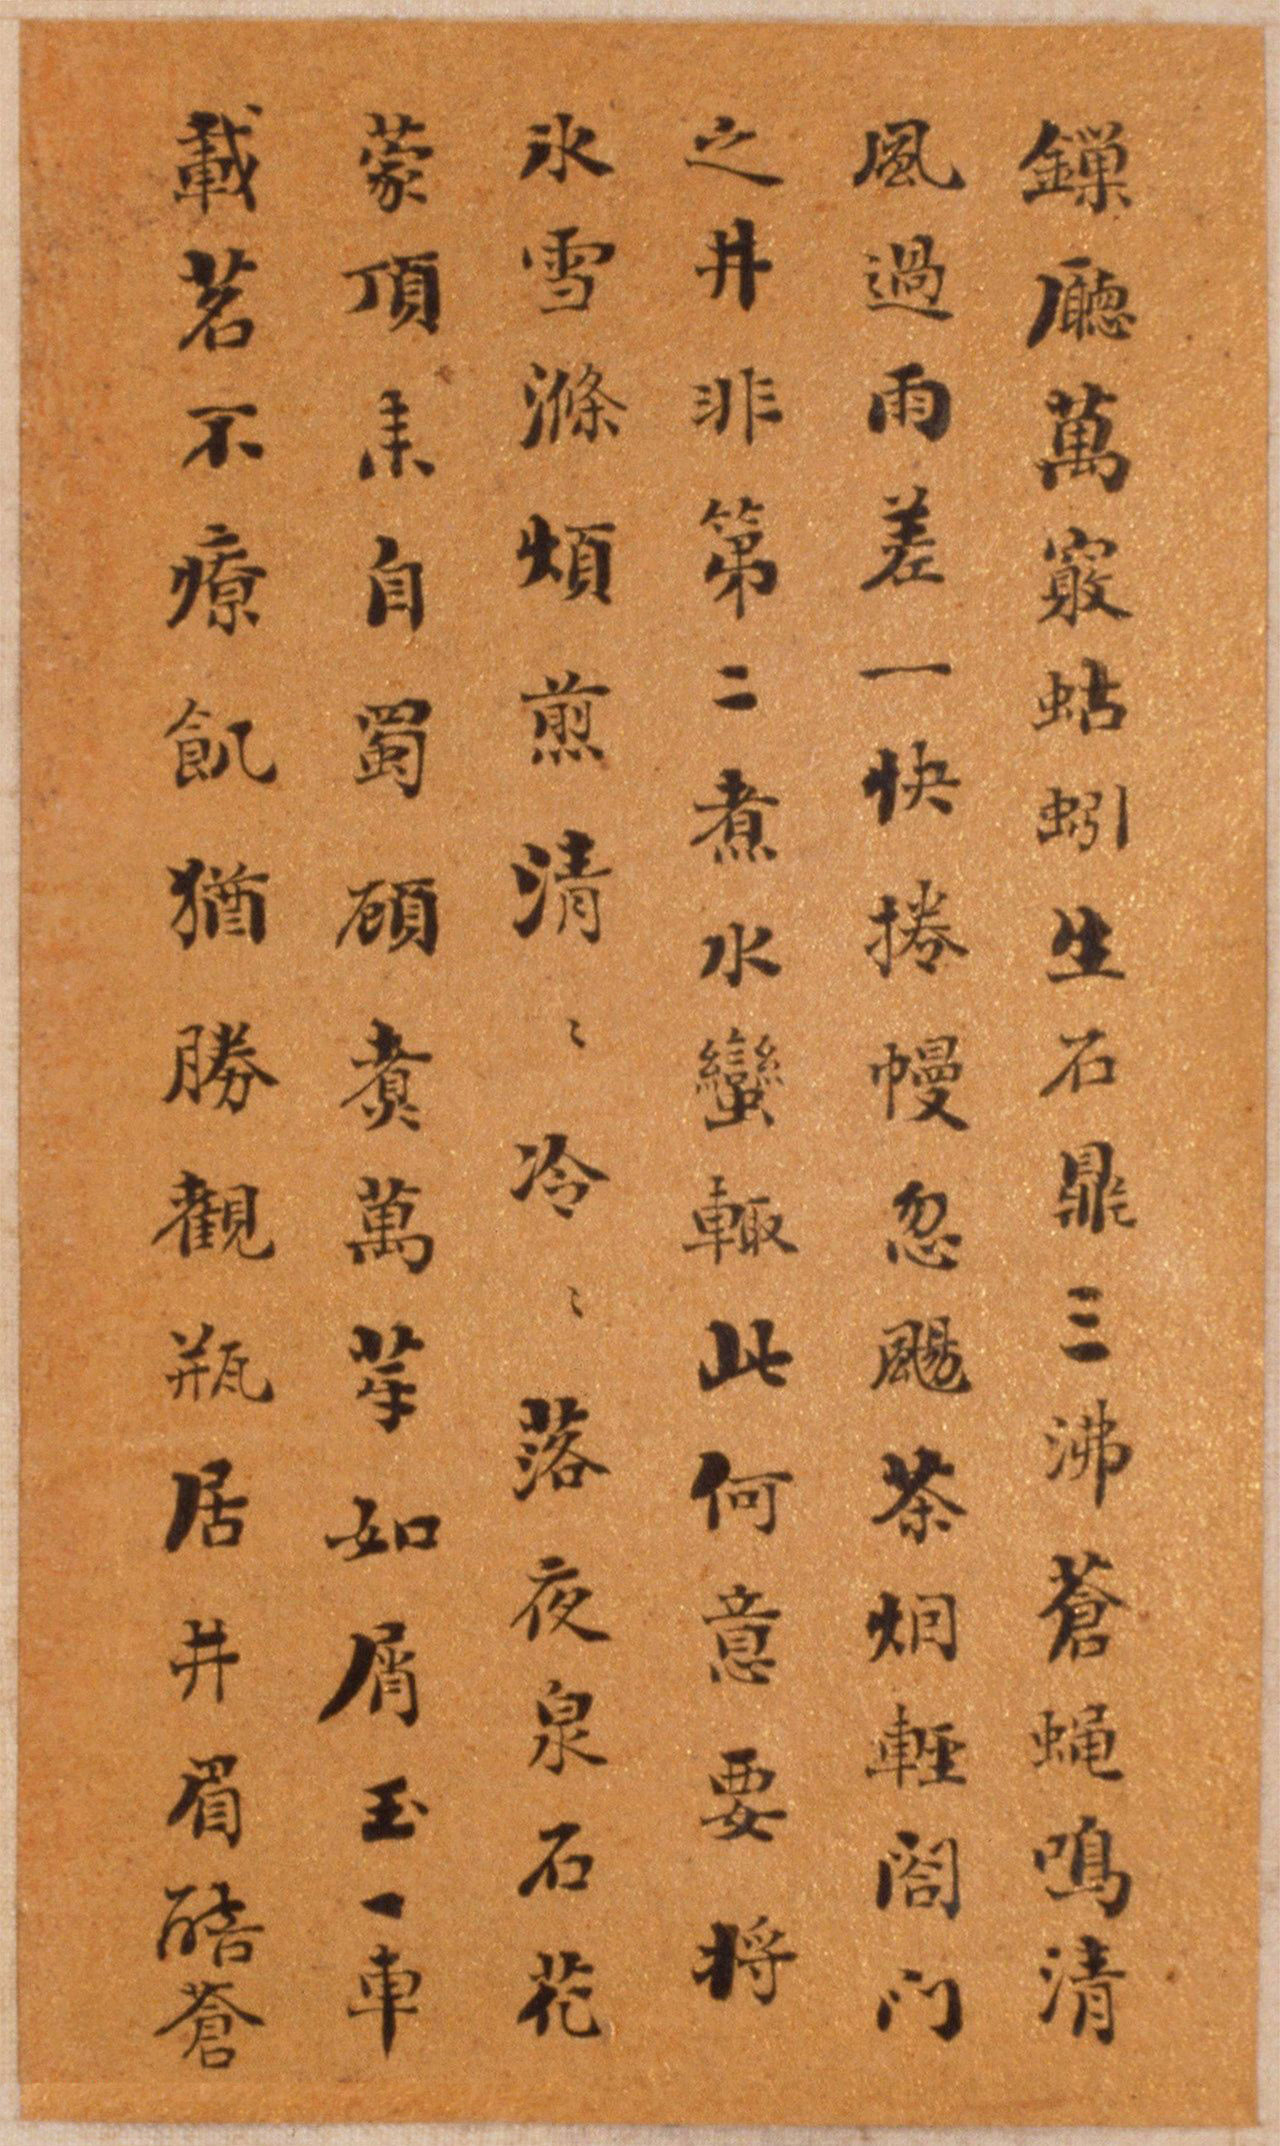 鏁廳萬竅蛄蚓生石鼎三沸蒼蝇鳴清
風過雨差一快捲幔忽颺茶烟輕閤門
之井非第二煮水蠻輙此何意要将
氷雪滌煩煎清〻冷〻落夜泉石花
蒙頂来自蜀頋煑萬芽如屑玉一車
載茗不療飢猶勝觀瓶居井眉酷蒼